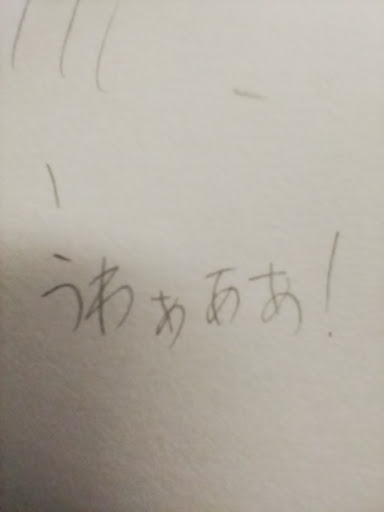 うわぁああ!